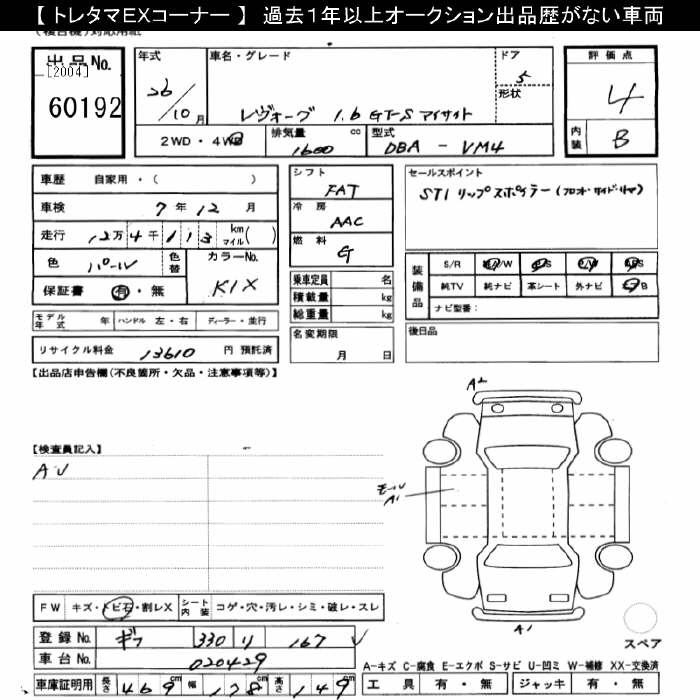 【 トレタマEXコーナー 】 過去1年以上オークション出品歴がない車両
出品No.
[2004]
60192
年式 車名・グレード ドア
26/10月 レヴォーグ 1.6 GT-S アイサイト 5
形状
2WD・4WD 排気量 1600 cc 型式 DBA - VM4
評価点
4
内装 B
車歴 自家用・( )
車検 7年12月
走行 12万4千113 km マイル( )
色 パール 色替 カラーNo. K1X
保証書 有・無
モデル年式 年 ハンドル 左・右 ディーラー・並行
リサイクル料金 13610 円 預託済
シフト FAT
冷房 AAC
燃料 G
乗車定員 名
積載量 kg
総重量 kg
名変期限
月 日
セールスポイント
STI リップスポイラー (フロント・サイド・リヤ)
装備品 S/R 純A/W P/S P/W ABS
純TV 純ナビ 革シート 外ナビ エアB
ナビ型番:
後日品
【出品店申告欄(不良箇所・欠品・注意事項等)】
【検査員記入】
AU
A2
モール
A1
A1
スペア
FW キズ・トビ石・割レX シート内装 コゲ・穴・汚レ・シミ・破レ・スレ
登録No. ギフ 330 リ 167
車台No. 020429
車庫証明用 長さ 469 幅 178 高さ 149
A-キズ C-腐食 E-エクボ S-サビ U-凹ミ W-補修 XX-交換済
工具 有・無 ジャッキ 有・無